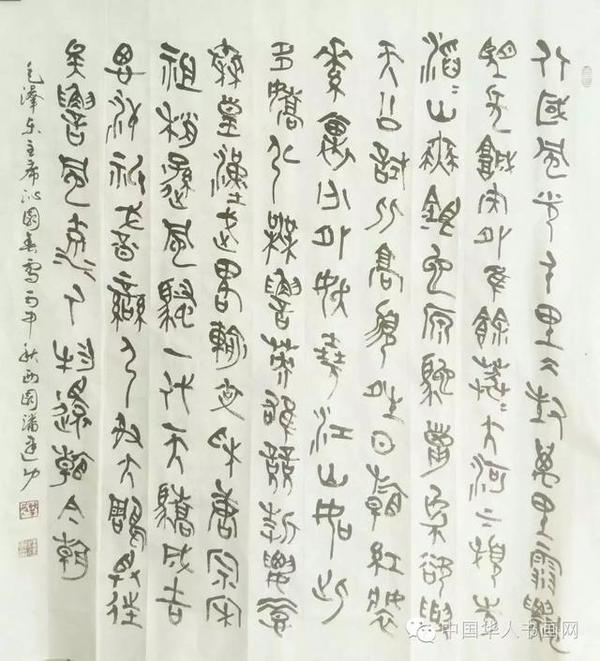 北國風光千里冰封萬里雪飄
望長城内外惟餘莽莽大河上下頓失
滔滔山舞銀蛇原馳蠟象欲與
天公試比高須晴日看紅裝
素裹分外妖嬈江山如此
多嬌引無數英雄競折腰惜
秦皇漢武略輸文采唐宗宋
祖稍遜風騷一代天驕成吉
思汗只識彎弓射大雕俱往
矣數風流人物還看今朝
毛澤東主席沁園春雪丙申秋西園潘
中国华人书画网